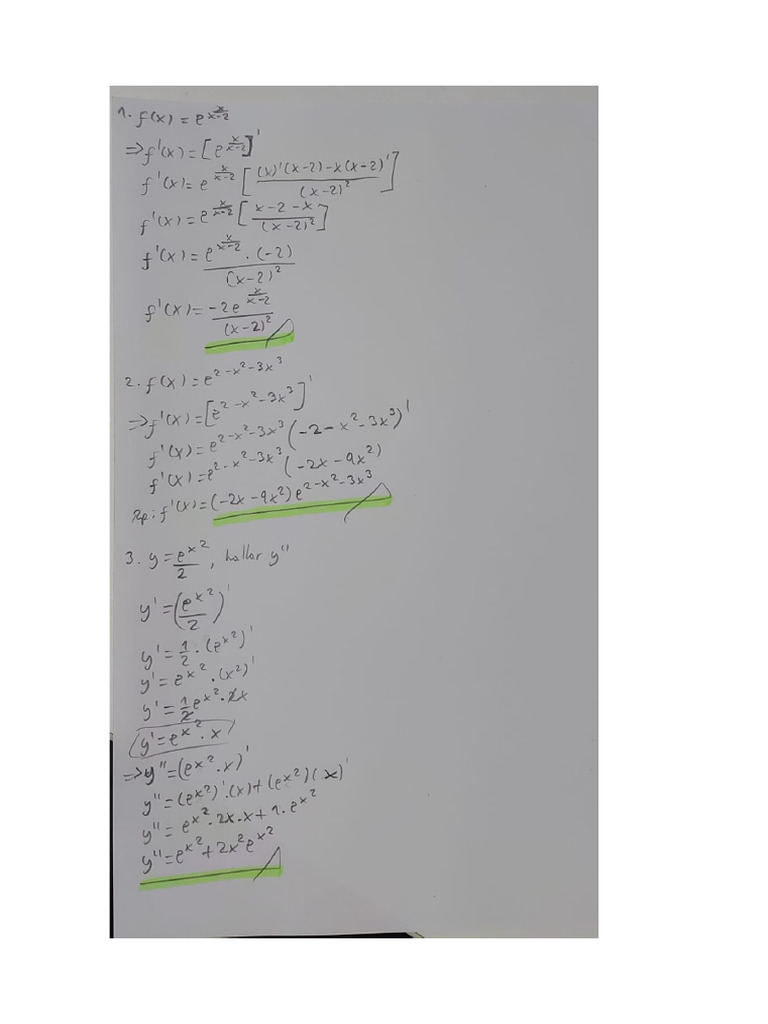 1. f(x) = e^(x/(x-2))
⇒ f'(x) = [e^(x/(x-2))]'
f'(x) = e^(x/(x-2)) [((x)'(x-2) - x(x-2)')/(x-2)²]
f'(x) = e^(x/(x-2)) [(x-2-x)/(x-2)²]
f'(x) = (e^(x/(x-2)) · (-2))/(x-2)²
f'(x) = (-2e^(x/(x-2)))/(x-2)²
2. f(x) = e^(2-x²-3x³)
⇒ f'(x) = [e^(2-x²-3x³)]'
f'(x) = e^(2-x²-3x³) (-2-x²-3x³)'
f'(x) = e^(2-x²-3x³) (-2x-9x²)
Rp: f'(x) = (-2x-9x²) e^(2-x²-3x³)
3. y = e^(x²)/2, hallar y''
y' = (e^(x²)/2)'
y' = 1/2 · (e^(x²))'
y' = e^(x²) · (x²)'
y' = 1/2 e^(x²) · 2x
y' = e^(x²) · x
⇒ y'' = (e^(x²) · x)'
y'' = (e^(x²))' · (x) + (e^(x²))(x)'
y'' = e^(x²) · 2x · x + 1 · e^(x²)
y'' = e^(x²) + 2x² e^(x²)